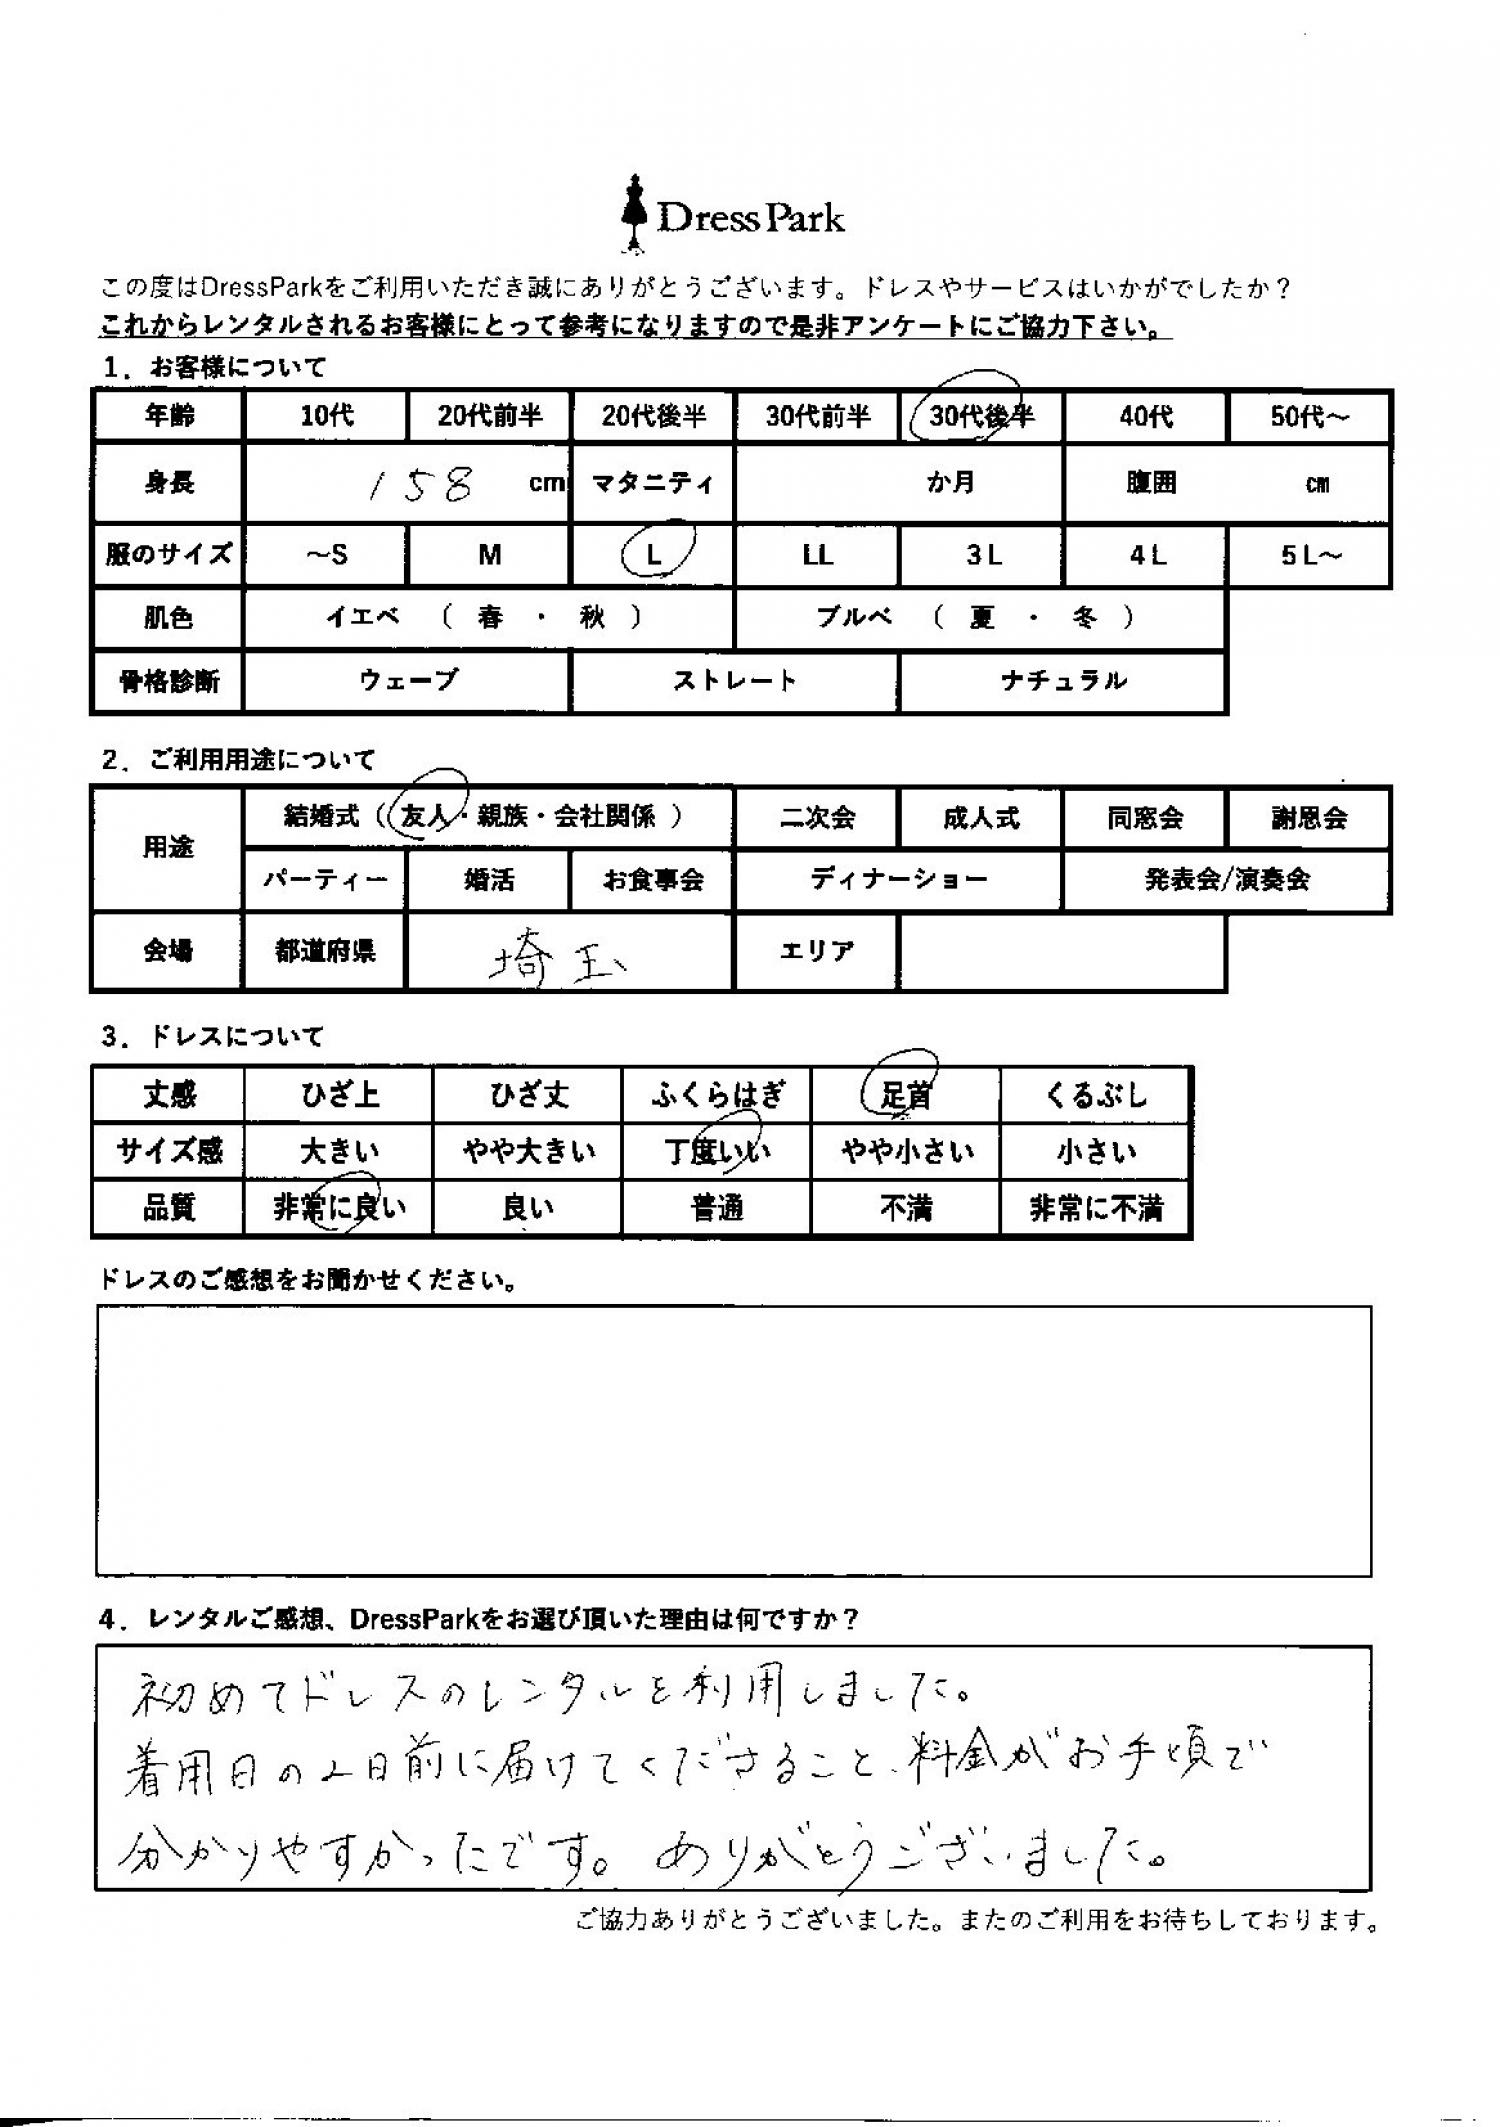 Dress Park
この度はDressParkをご利用いただき誠にありがとうございます。ドレスやサービスはいかがでしたか？
これからレンタルされるお客様にとって参考になりますので是非アンケートにご協力下さい。
1．お客様について
年齢 10代 20代前半 20代後半 30代前半 30代後半 40代 50代～
身長 158 cm マタニティ か月 腹囲 cm
服のサイズ ～S M L LL 3L 4L 5L～
肌色 イエベ （ 春 ・ 秋 ） ブルベ （ 夏 ・ 冬 ）
骨格診断 ウェーブ ストレート ナチュラル
2．ご利用用途について
用途 結婚式（ 友人・親族・会社関係 ） 二次会 成人式 同窓会 謝恩会
パーティー 婚活 お食事会 ディナーショー 発表会/演奏会
会場 都道府県 埼玉 エリア
3．ドレスについて
丈感 ひざ上 ひざ丈 ふくらはぎ 足首 くるぶし
サイズ感 大きい やや大きい 丁度いい やや小さい 小さい
品質 非常に良い 良い 普通 不満 非常に不満
ドレスのご感想をお聞かせください。
4．レンタルご感想、DressParkをお選び頂いた理由は何ですか？
初めてドレスのレンタルを利用しました。
着用日の2日前に届けてくださること、料金がお手頃で
分かりやすかったです。ありがとうございました。
ご協力ありがとうございました。またのご利用をお待ちしております。